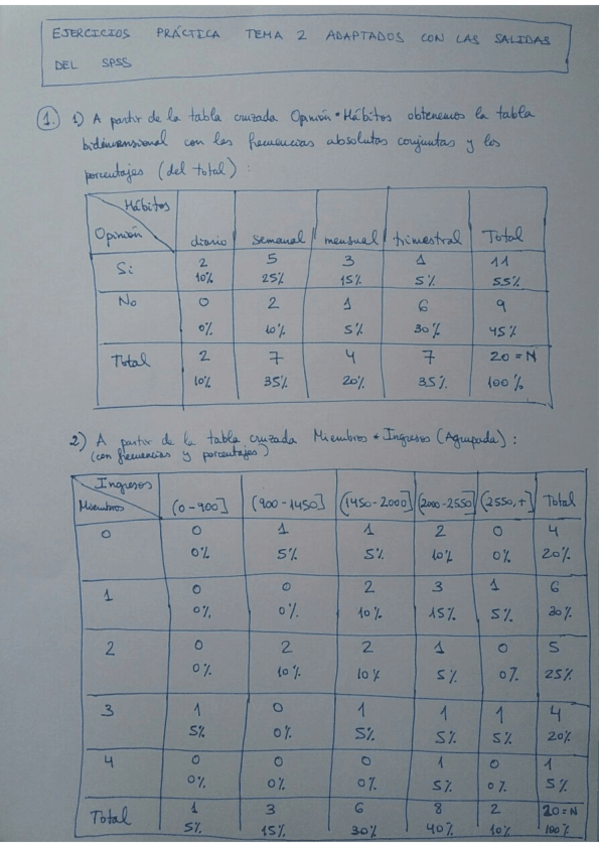 EJERCICIOS PRÁCTICA TEMA 2 ADAPTADOS CON LAS SALIDAS
DEL SPSS
1. 1) A partir de la tabla cruzada Opinión * Hábitos obtenemos la tabla
bidimensional con las frecuencias absolutas conjuntas y los
porcentajes (del total):
Hábitos
Opinión diario semanal mensual trimestral Total
Si 2 5 3 1 11
10% 25% 15% 5% 55%
No 0 2 1 6 9
0% 10% 5% 30% 45%
Total 2 7 4 7 20 = N
10% 35% 20% 35% 100%
2) A partir de la tabla cruzada Miembros * Ingresos (Agrupada):
(con frecuencias y porcentajes)
Ingresos
Miembros (0-900] (900-1450] (1450-2000] (2000-2550] (2550,+] Total
0 0 1 1 2 0 4
0% 5% 5% 10% 0% 20%
1 0 0 2 3 1 6
0% 0% 10% 15% 5% 30%
2 0 2 2 1 0 5
0% 10% 10% 5% 0% 25%
3 1 0 1 1 1 4
5% 0% 5% 5% 5% 20%
4 0 0 0 1 0 1
0% 0% 0% 5% 0% 5%
Total 1 3 6 8 2 20=N
5% 15% 30% 40% 10% 100%